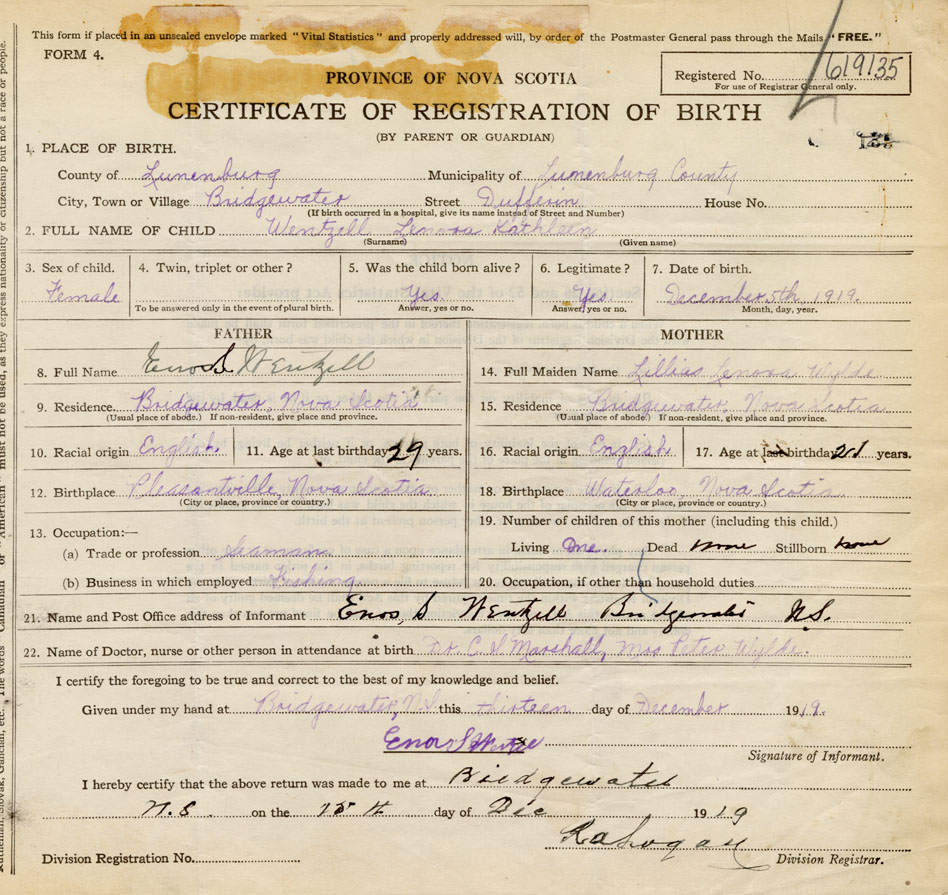 This form if placed in an unsealed envelope marked "Vital Statistics" and properly addressed will, by order of the Postmaster General pass through the Mails "FREE."
FORM 4.
PROVINCE OF NOVA SCOTIA
Registered No. 619135
For use of Registrar General only.
CERTIFICATE OF REGISTRATION OF BIRTH
(BY PARENT OR GUARDIAN)
1. PLACE OF BIRTH.
County of Lunenburg Municipality of Lunenburg County
City, Town or Village Bridgewater Street Dufferin House No.
(If birth occurred in a hospital, give its name instead of Street and Number)
2. FULL NAME OF CHILD Wentzell Lennra Kathleen
(Surname) (Given name)
3. Sex of child. 4. Twin, triplet or other? 5. Was the child born alive? 6. Legitimate? 7. Date of birth.
Female Yes. Yes December 5th, 1919.
To be answered only in the event of plural birth. Answer, yes or no. Answer, yes or no. Month, day, year.
FATHER MOTHER
8. Full Name Enos S. Wentzell 14. Full Maiden Name Lillias Lenora Wylde
9. Residence. Bridgewater, Nova Scotia 15. Residence Bridgewater, Nova Scotia
(Usual place of abode.) If non-resident, give place and province. (Usual place of abode.) If non-resident, give place and province.
10. Racial origin English. 11. Age at last birthday 29 years. 16. Racial origin English. 17. Age at last birthday 21 years.
12. Birthplace Pleasantville, Nova Scotia 18. Birthplace Waterloo, Nova Scotia
(City or place, province or country.) (City or place, province or country.)
13. Occupation:— 19. Number of children of this mother (including this child.)
(a) Trade or profession Seaman Living One. Dead none Stillborn none
(b) Business in which employed Fishing 20. Occupation, if other than household duties
21. Name and Post Office address of Informant Enos, S Wentzell Bridgewater N.S.
22. Name of Doctor, nurse or other person in attendance at birth Dr. C. S Marshall, Mrs Peter Wylde.
I certify the foregoing to be true and correct to the best of my knowledge and belief.
Given under my hand at Bridgewater, N.S. this thirteen day of December 1919.
Enos S
Signature of Informant.
I hereby certify that the above return was made to me at Bridgewater
N.S. on the 15th day of Dec 1919
Division Registration No. Division Registrar.
must not be used, as they express nationality or citizenship but not a race or people.
The words "Canadian" or "American"
Ruthenian, Slovak, Galician, etc.